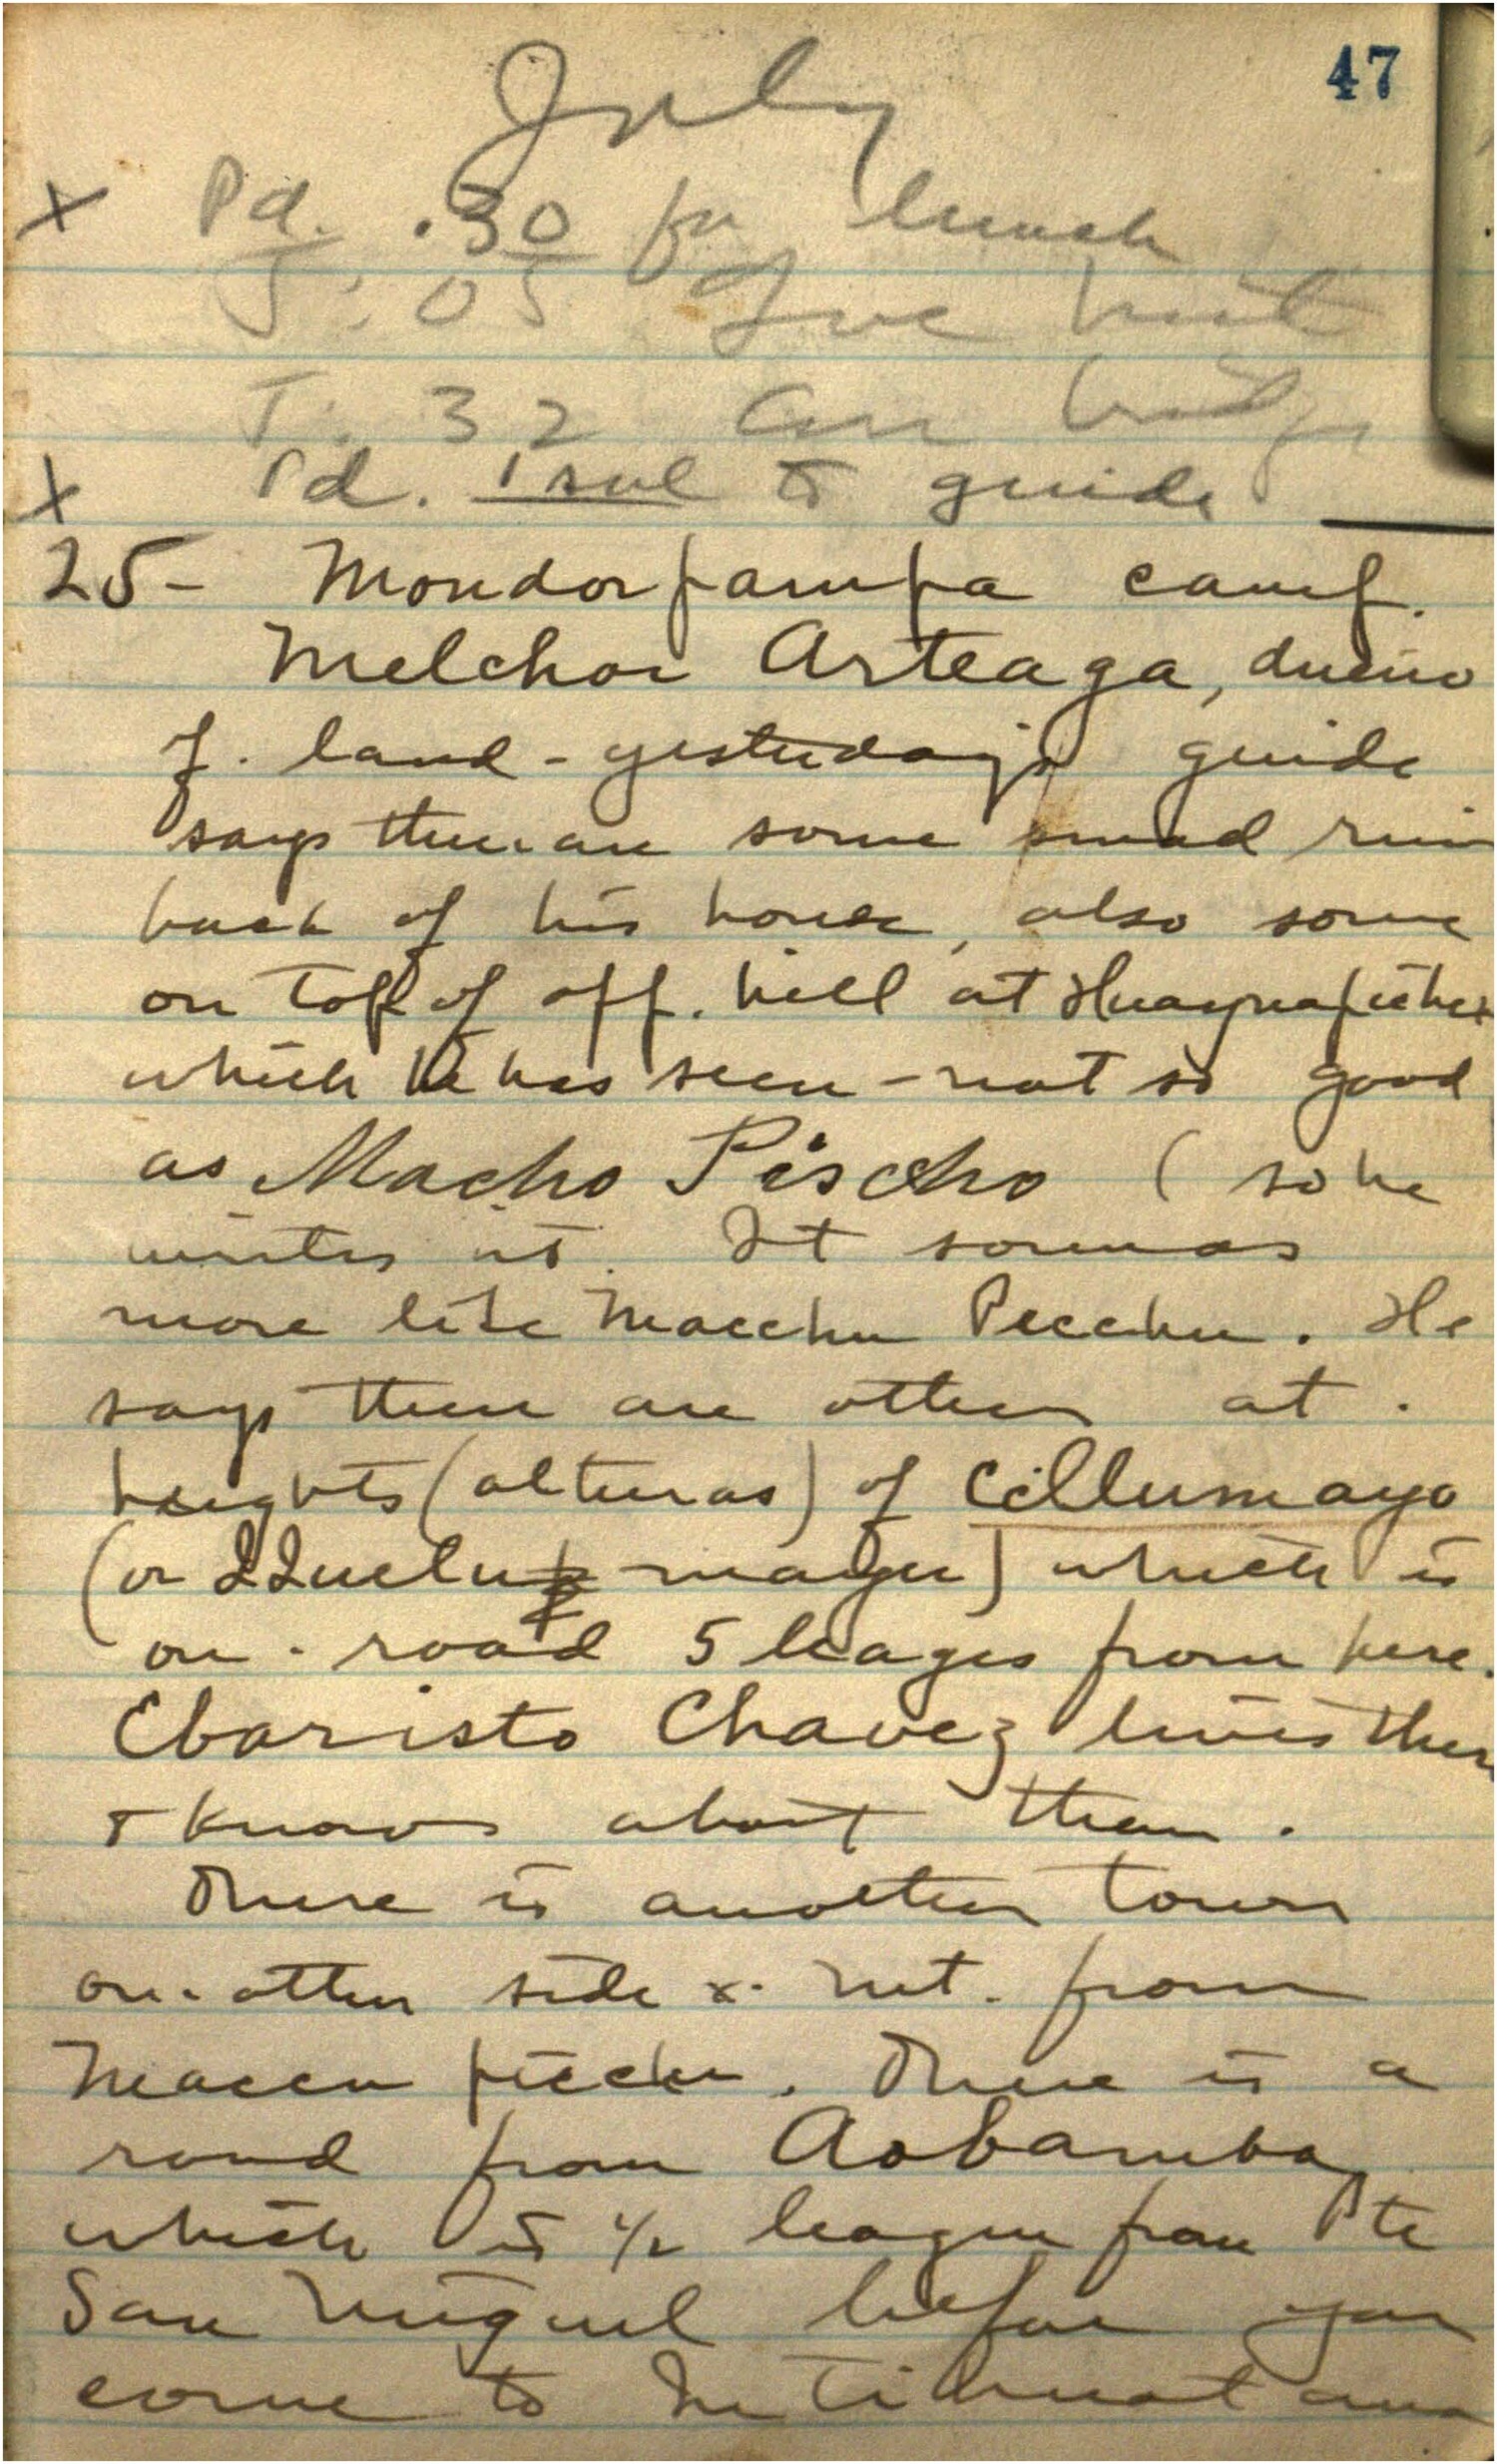 47
July
x Pd. .30 for lunch
T: 05 Live hut
T. 32 Cross bridge
x Pd. 1 sol to guide
25- Mondorpampa camp.
Melchor Arteaga, dueño
of . land - yesterday's guide
says there are some small ruin
back of his house, also some
on top of opp. hill at Huaynapichu
which he has seen - not so good
as Macho Pisccho ( so he
writes it. It sounds
more like Macchu Pecchu. He
says there are others at .
heights (alturas) of Cillumayo
mayu) which is
on . road 5 leages from here.
Ebaristo Chavez lives there
+ knows about them.
There is another town
on . other side . mt. from
Maccu picchu. There is a
road from Aobamba
which is 1/2 league from Pte
San Miguel before you
come to Intihuatana